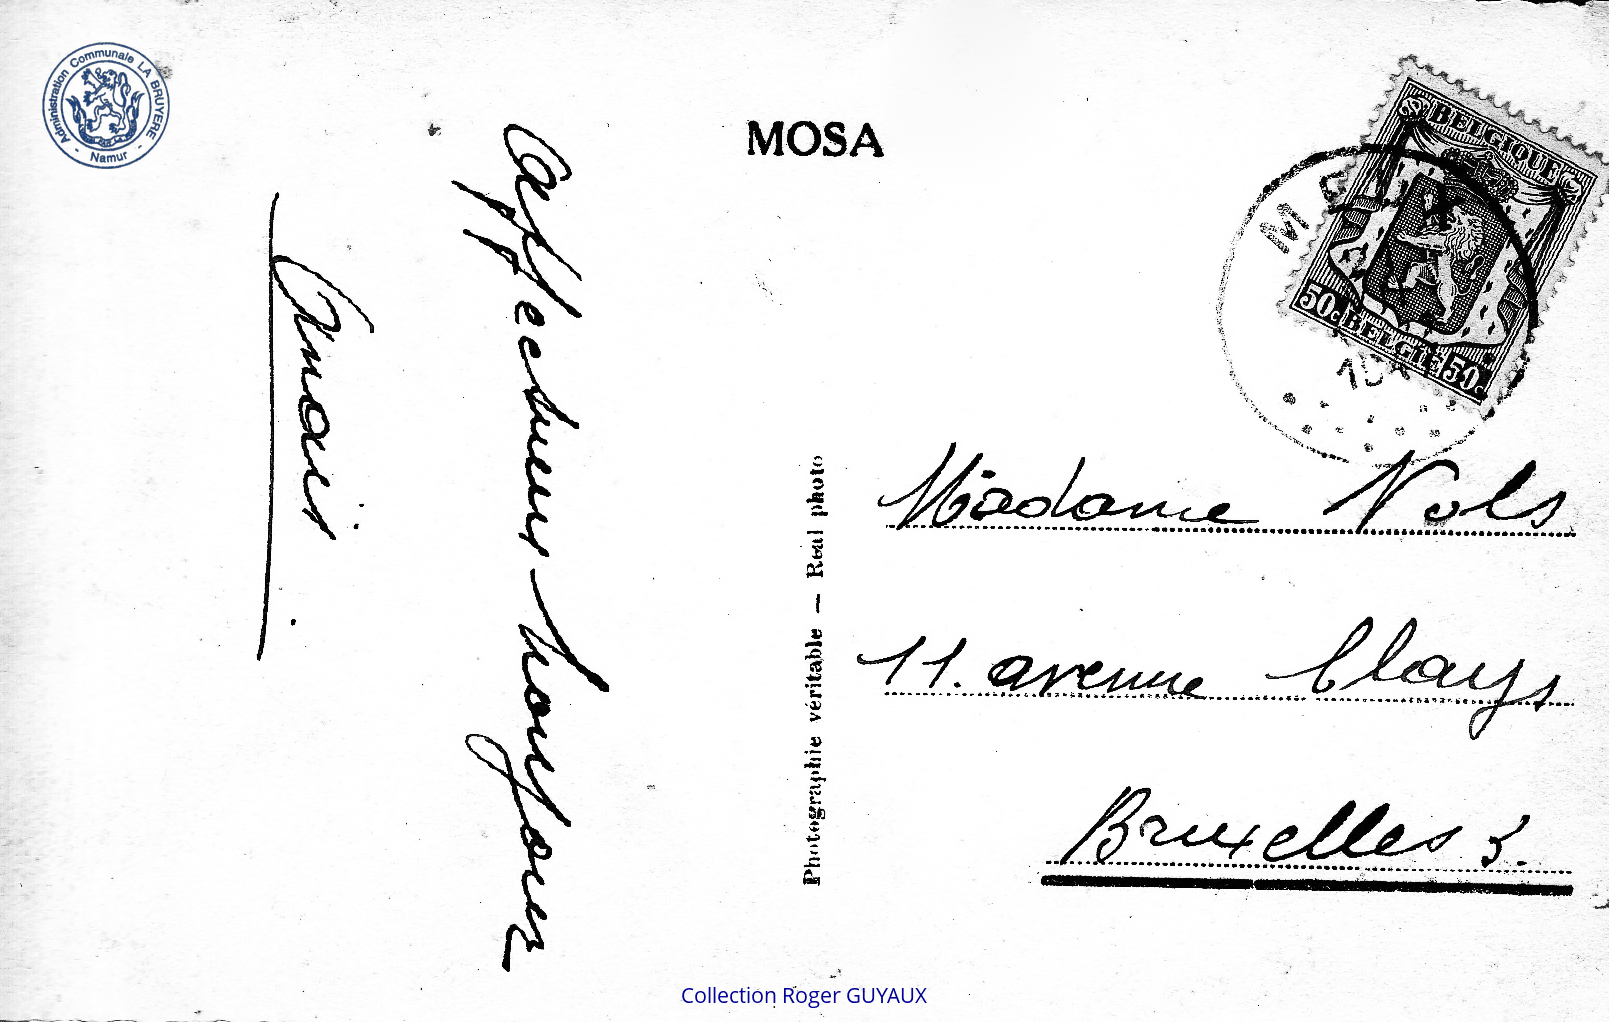 Administration Communale LA BRUYERE
- Namur -
MOSA
BELGIQUE
50c BELGIË 50c
Affectueux bonjour
Anaïs
Photographie véritable — Real photo
Madame Nols
11. avenue Clays
Bruxelles 3.
Collection Roger GUYAUX